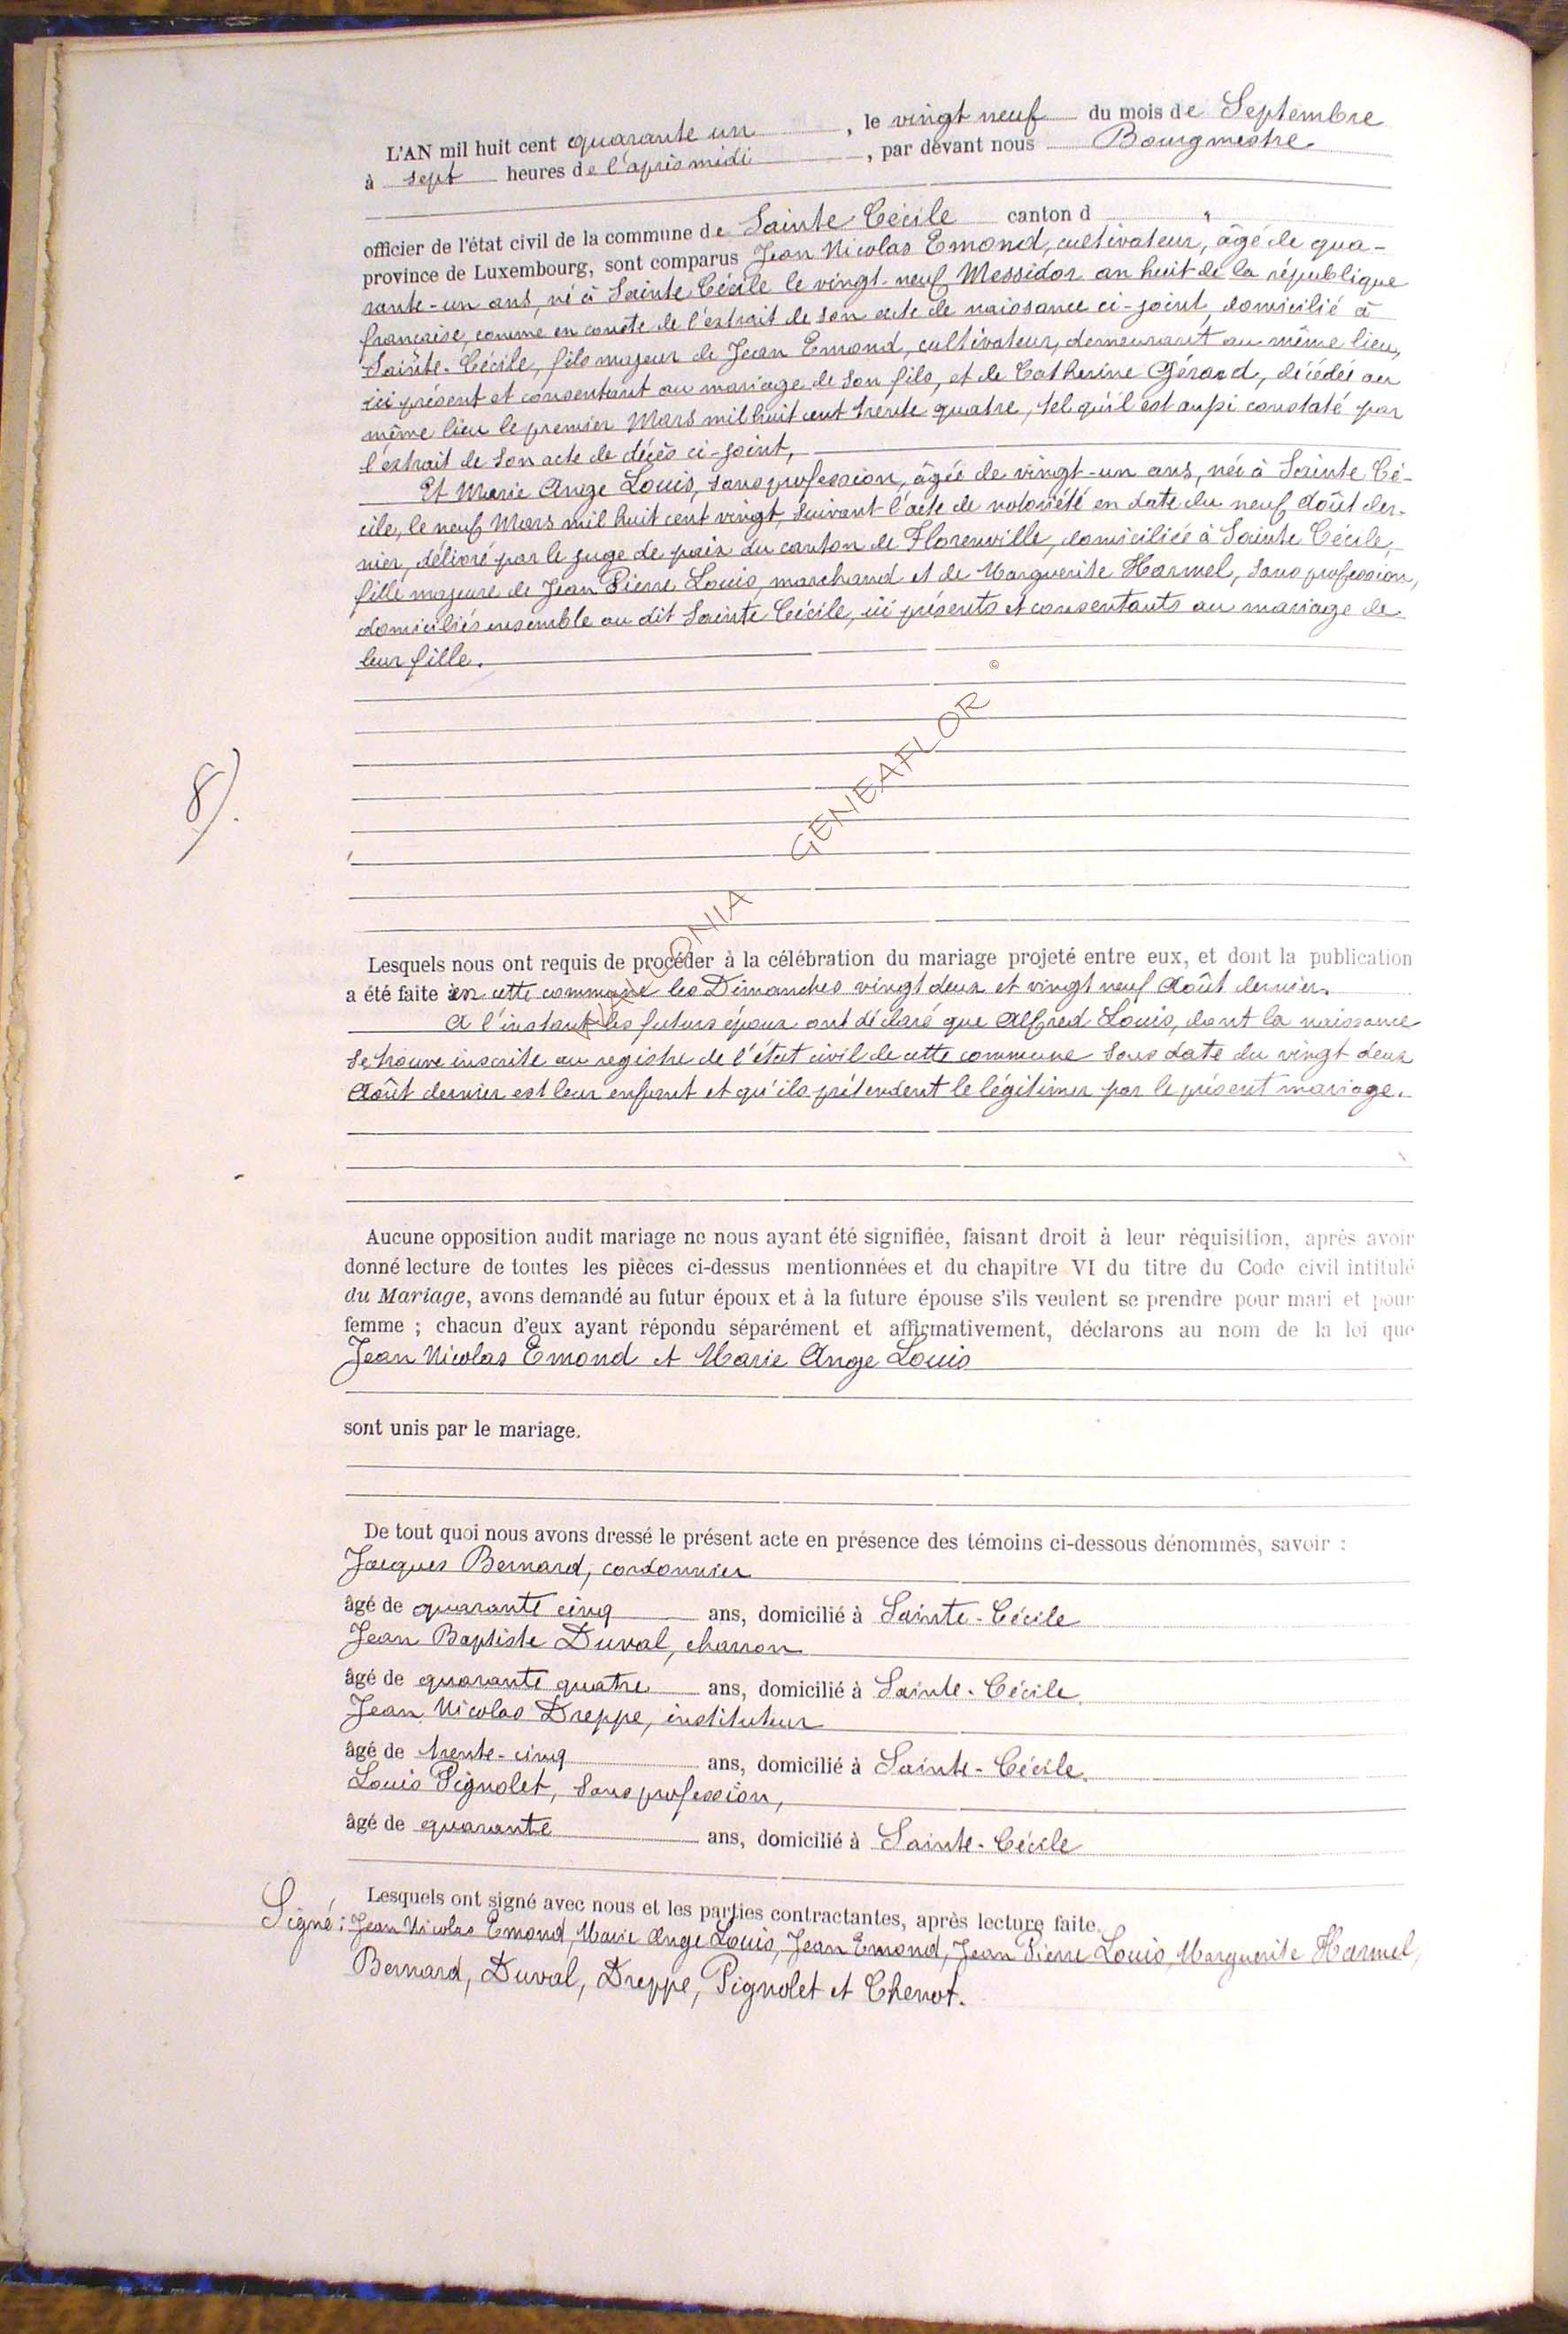 L'AN mil huit cent quarante un, le vingt neuf du mois de Septembre
à sept heures de l'après midi, par devant nous Bourgmestre
officier de l'état civil de la commune de Sainte Cécile canton d "
province de Luxembourg, sont comparus Jean Nicolas Emond, cultivateur, âgé de qua-
rante-un ans, né à Sainte Cécile le vingt-neuf Messidor an huit de la république
française, comme en conste de l'extrait de son acte de naissance ci-joint, domicilié à
Sainte-Cécile, fils majeur de Jean Emond, cultivateur, demeurant au même lieu,
ici présent et consentant au mariage de son fils, et de Catherine Gérard, décédée au
même lieu le premier Mars mil huit cent trente quatre, tel qu'il est aussi constaté par
l'extrait de son acte de décès ci-joint,
Et Marie Ange Louis, sans profession, âgée de vingt-un ans, née à Sainte Cé-
cile, le neuf Mars mil huit cent vingt, suivant l'acte de notoriété en date du neuf Août der-
nier, délivré par le juge de paix du canton de Florenville, domiciliée à Sainte Cécile,
fille majeure de Jean Pierre Louis, marchand et de Marguerite Harmel, sans profession,
domiciliés ensemble au dit Sainte Cécile, ici présents et consentants au mariage de
leur fille.
©
WALLONIA GENEAFLOR
8).
Lesquels nous ont requis de procéder à la célébration du mariage projeté entre eux, et dont la publication
a été faite en cette commune les Dimanches vingt deux et vingt neuf Août dernier.
A l'instant les futurs époux ont déclaré que Alfred Louis, dont la naissance
se trouve inscrite au registre de l'état civil de cette commune sous date du vingt deux
Août dernier est leur enfant et qu'ils prétendent le légitimer par le présent mariage.
Aucune opposition audit mariage ne nous ayant été signifiée, faisant droit à leur réquisition, après avoir
donné lecture de toutes les pièces ci-dessus mentionnées et du chapitre VI du titre du Code civil intitulé
du Mariage, avons demandé au futur époux et à la future épouse s'ils veulent se prendre pour mari et pour
femme ; chacun d'eux ayant répondu séparément et affirmativement, déclarons au nom de la loi que
Jean Nicolas Emond et Marie Ange Louis
sont unis par le mariage.
De tout quoi nous avons dressé le présent acte en présence des témoins ci-dessous dénommés, savoir :
Jacques Bernard, cordonnier
âgé de quarante cinq ans, domicilié à Sainte-Cécile
Jean Baptiste Duval, charron
âgé de quarante quatre ans, domicilié à Sainte-Cécile.
Jean Nicolas Dreppe, instituteur
âgé de trente-cinq ans, domicilié à Sainte-Cécile.
Louis Pignolet, sans profession,
âgé de quarante ans, domicilié à Sainte-Cécile
Lesquels ont signé avec nous et les parties contractantes, après lecture faite.
Signé : Jean Nicolas Emond, Marie Ange Louis, Jean Emond, Jean Pierre Louis, Marguerite Harmel,
Bernard, Duval, Dreppe, Pignolet et Chenot.